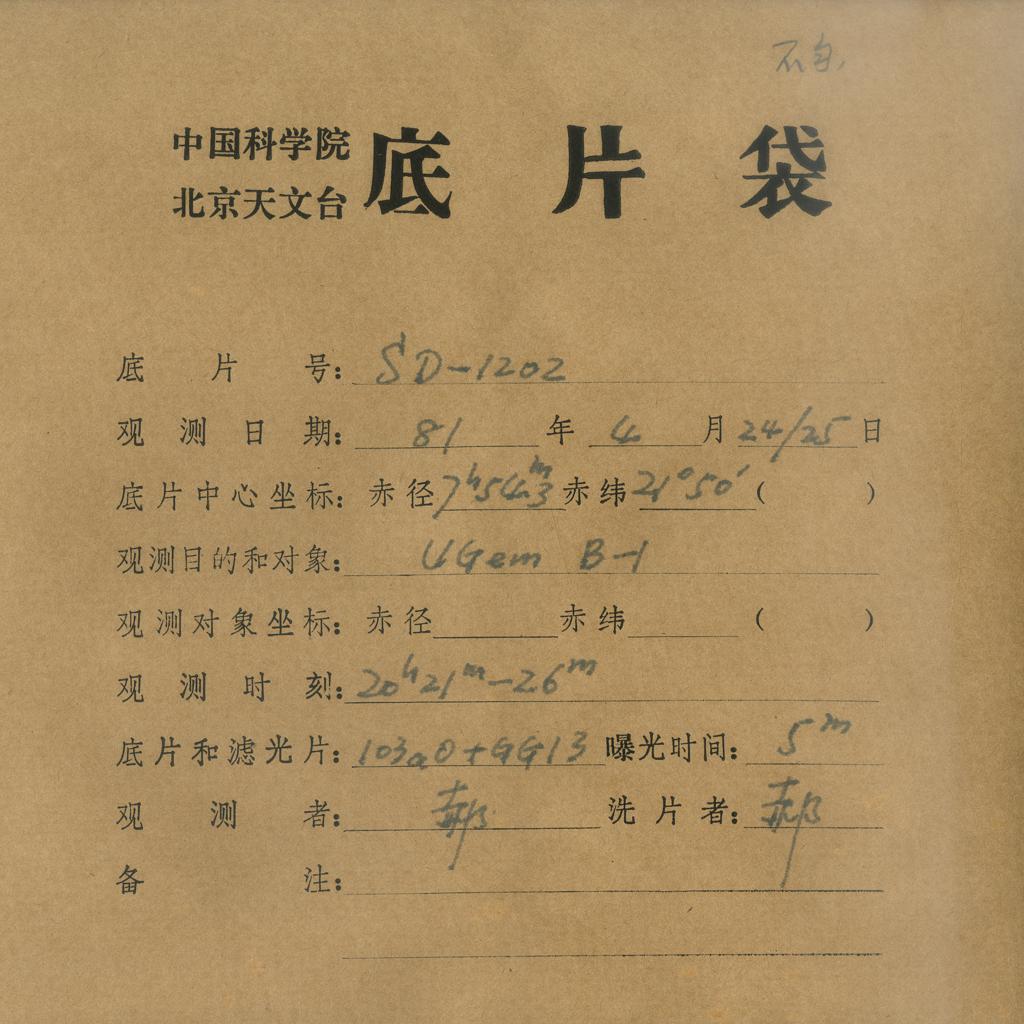 中国科学院
北京天文台
底片袋
底片号: SD-1202
观测日期: 81年 4月 24/25日
底片中心坐标: 赤径 7h54m.3 赤纬 21°50′ ( )
观测目的和对象: UGem B-1
观测对象坐标: 赤径 赤纬 ( )
观测时刻: 20h21m-26m
底片和滤光片: 103aO+GG13 曝光时间: 5m
观测者: 郝 洗片者: 郝
备注: